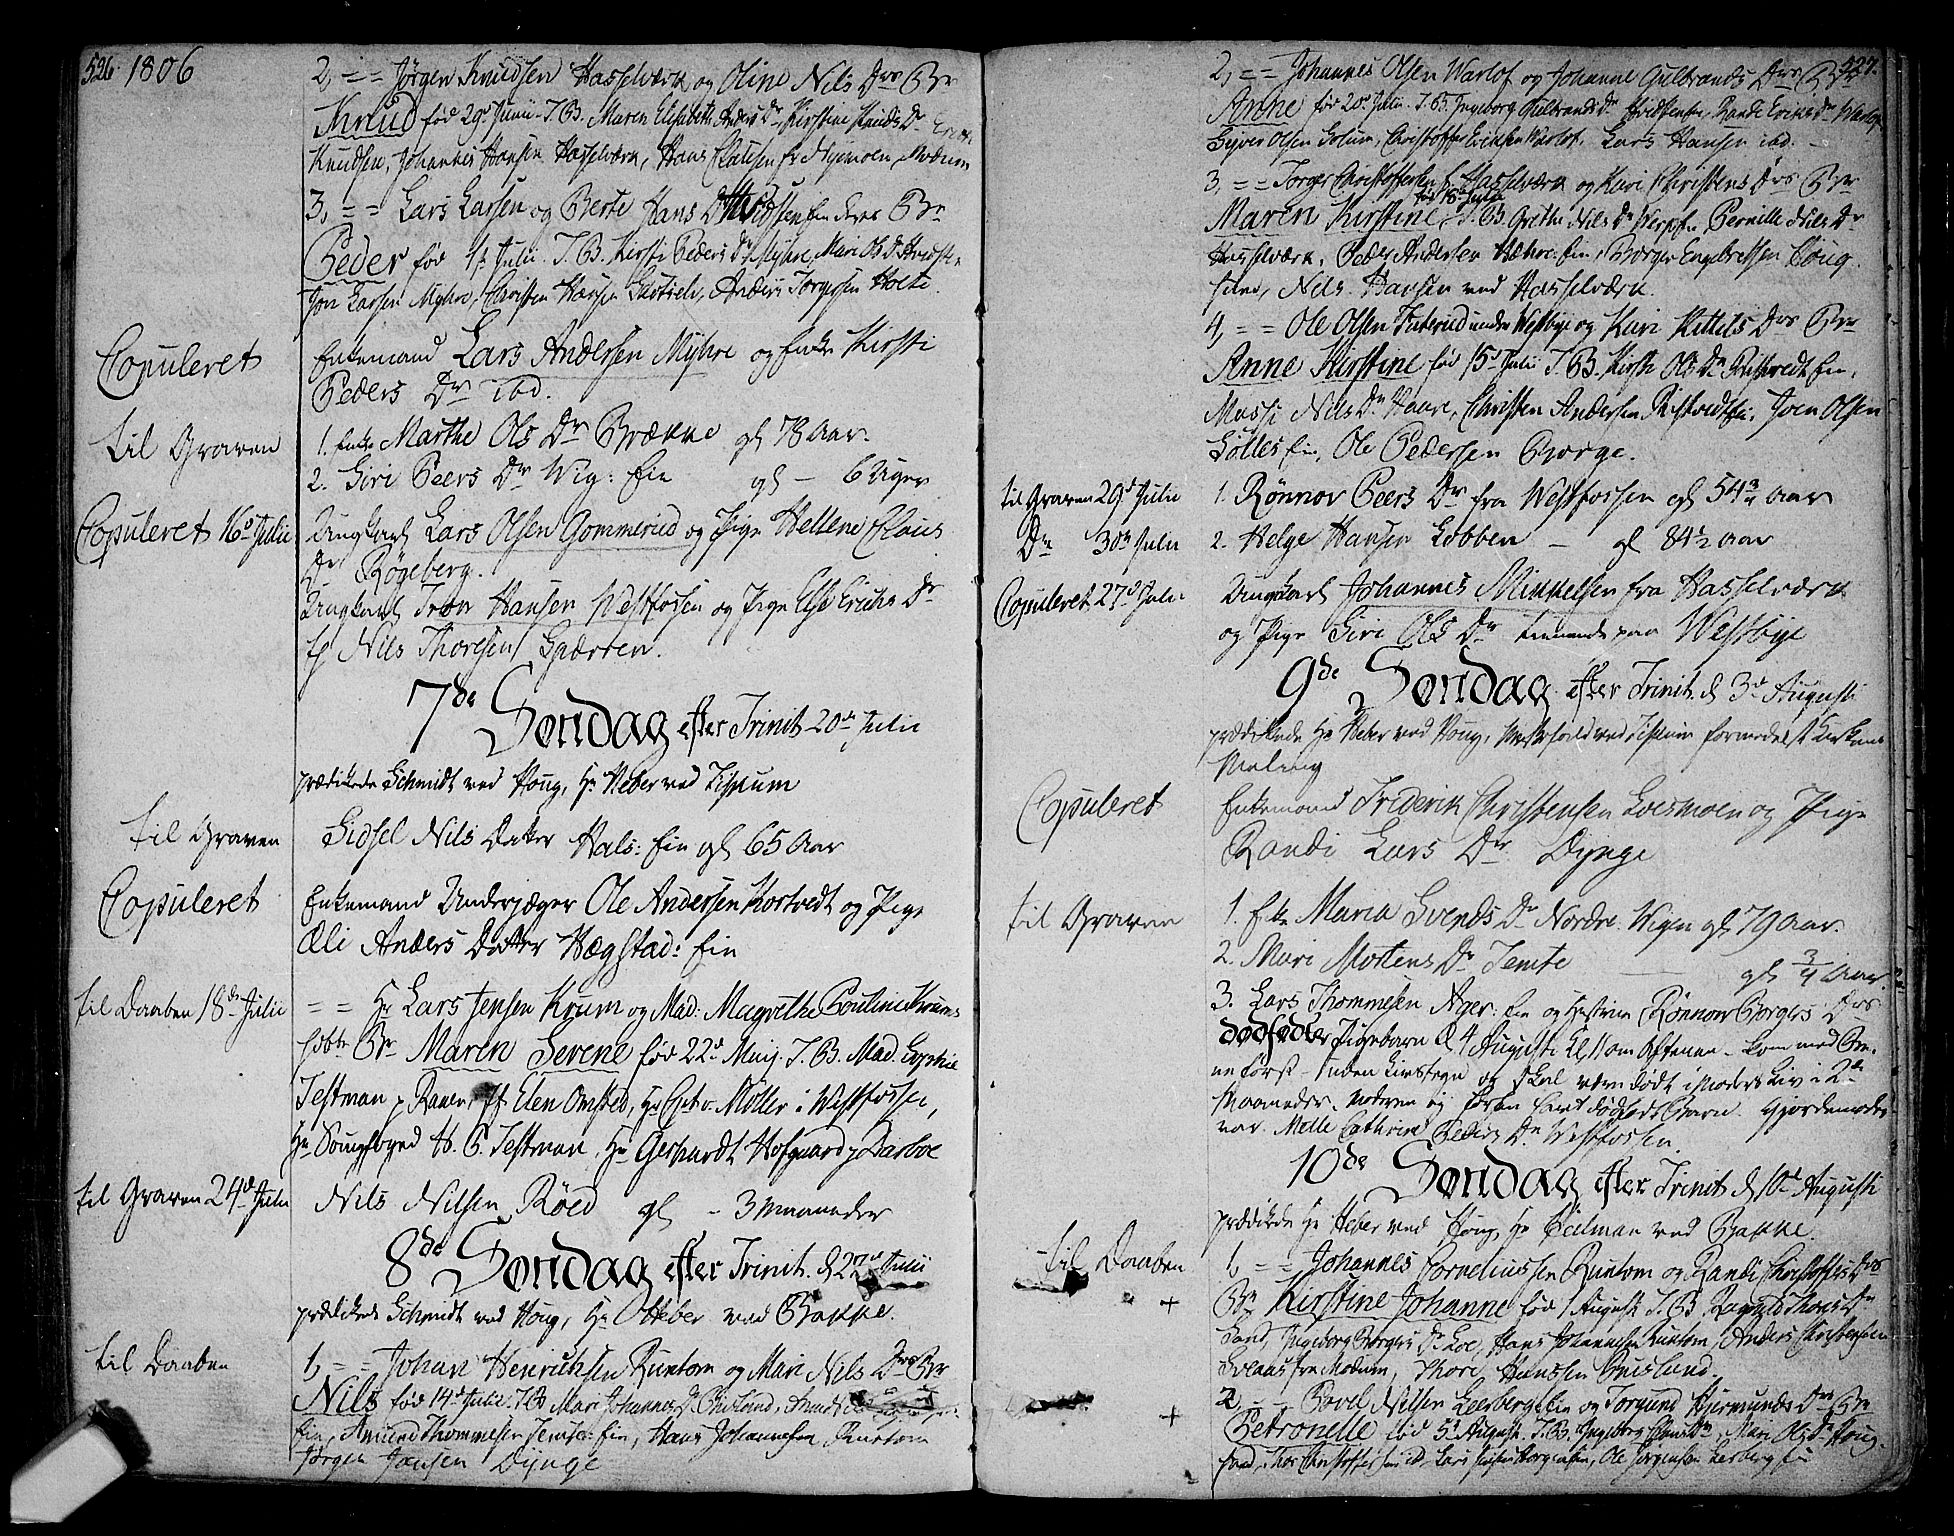 526. 1806
2, = = Jørgen Knudsen Hasselværk og Oline Nils Drs Br
Knud fød 29d Junii. T. B. Maren Elisabeth Anders Dr, Kirstine Knuds Dr
Knudsen, Johannes Hansen Hasselværk, Hans Clausen fr Nymoen, Modum
3, = = Lars Larsen og Berte Hans Dr deres Br
Peder fød Julii. T. B. Kirsti Peders Dr Myhre, Mari Ols Dr
Larsen Myhre, Christen Hansen, Anders Torgersen Holte.
Copuleret Enkemand Lars Andersen Myhre og Enke Kirsti
Peders Dr ibd.
til Graven 1. Enke Marthe Ols Dr Brække gl 78 Aar.
2. Giri Peers Dr Wig: Eie gl – 6 Uger
Copuleret 16d Julii Ungkarl Lars Olsen Gommerud og Pige Hellene Claus
Dr Røgeberg.
Ungkarl Iver Hansen Westfossen og Pige Else Erichs Dr
Nils Thoresen Sparren.
7de Søndag efter Trinit. 20de Julii
prædikede Schmidt ved Houg, Hr Heber ved Fiskum
til Graven Sidsel Nils Datter Hals: Eie gl 65 Aar
Copuleret Enkemand Underjæger Ole Andersen Kortvedt og Pige
Eli Anders Datter Hægstad: Eie
til Daaben 18de Julii = = Hr Lars Jensen Krum og Mad: Magrethe Pouline Krums
Br Maren Severe fød 22d Maij. T. B. Mad. Sophie
Testman Elen Omsted, Hr Møller i Westfossen,
Hr H. P. Testman, Hr Gerhardt Hofgaard Darboe
til Graven 24d Julii Nils Nilsen Røed gl – 3 Maaneder
8de Søndag efter Trinit. d 27d Julii
prædikede Schmidt ved Houg, Hr Heber ved Bakke.
til Daaben 1, = = Johan Henrichsen Runtom og Mari Nils Drs Br
Nils fød 14d Julii. T. B. Mari Johannes Dr
Eie, Amund Thommesen Temte: Eie, Hans Johannesen Runtom
Jørgen Jansen Dynge
527.
2, = = Johannes Olsen Warlof og Johanne Gulbrands Drs Br
Anne fød 20d Julii. T. B. Ingeborg Gulbrands Dr, Randi Erichs Dr Warlof
Siver Olsen Solum, Christoffer Erichsen Warlof, Lars Hansen ibd.
3, = = Torger Christoffersen Hasselværk og Kari Christens Drs Br
fød 18d Julii
Maren Kirstine, T. B. Grethe Nils Dr, Pernille Nils Dr
Hasselværk, Peder Andersen Hæhre: Eie, Borger Engebretsen
Nils Hansen ved Hasselværk.
4, = = Ole Olsen under Westbye og Kari Kittels Drs Br
Anne Kirstine fød 15d Julii T. B. Kirsti Ols Dr Eie,
Massi Nils Dr Haare, Christen Andersen, Joen Olsen
Eie, Ole Pedersen Borge.
til Graven 29d Julii 1. Rønnov Peers Dr fra Westfossen gl 54¾ Aar
Do 30te Julii 2. Helge Hansen Lobben – gl 84½ Aar
Copuleret 27d Julii Ungkarl Johannes Mikkelsen fra Hasselværk
og Pige Giri Ols Dr tienende paa Westbye
9de Søndag efter Trinit. d 3d Augusti
prædikede Hr Heber ved Houg, Messefald ved Fiskum formedelst Kirkens
Maling
Copuleret Enkemand Friderik Christensen Loesmoen og Pige
Randi Lars Dr Dynge
til Graven 1. Enke Maria Svends Dr Nordre Wigen gl 79 Aar.
2. Mari Mortens Dr Temte gl ¾ Aar.
3. Lars Thommesen Ager: Eie og Hustrue Rønnov Borgers Drs
dødfødte Pigebarn d 4 Augusti Kl 11 om Aftenen – kom med
ne først – uden Livstegn og skal være dødt i Moders Liv i 2de
Maaneder. Moderen eig førhen havt dødfødt Barn. Gjordemoder
var Melle Cathrine Peders Dr Westfossen.
10de Søndag efter Trinit. d 10d Augusti
prædikede Hr Heber ved Houg, Hr Feilman ved Bakke.
til Daaben 1, = = Johannes Corneliussen Runtom og Randi Christoffers Drs
+ Br Kirstine Johanne fød 1 August. T. B. Ragnild Thores Dr
Sand, Ingeborg Borgers Dr Loe, Hans Johannesen Runtom, Anders Christensen
fra Modum, Thore Hansen
+ 2, – – Povel Nilsen Leerberg: Eie og Torgund Hjermunds Drs Br
Petronelle fød 5d August. T. B. Ingeborg Claus Dr, Mari Ols Dr Houg
Thor Christoffersen ibd. Lars, Ole Jørgensen Leerberg: Eie